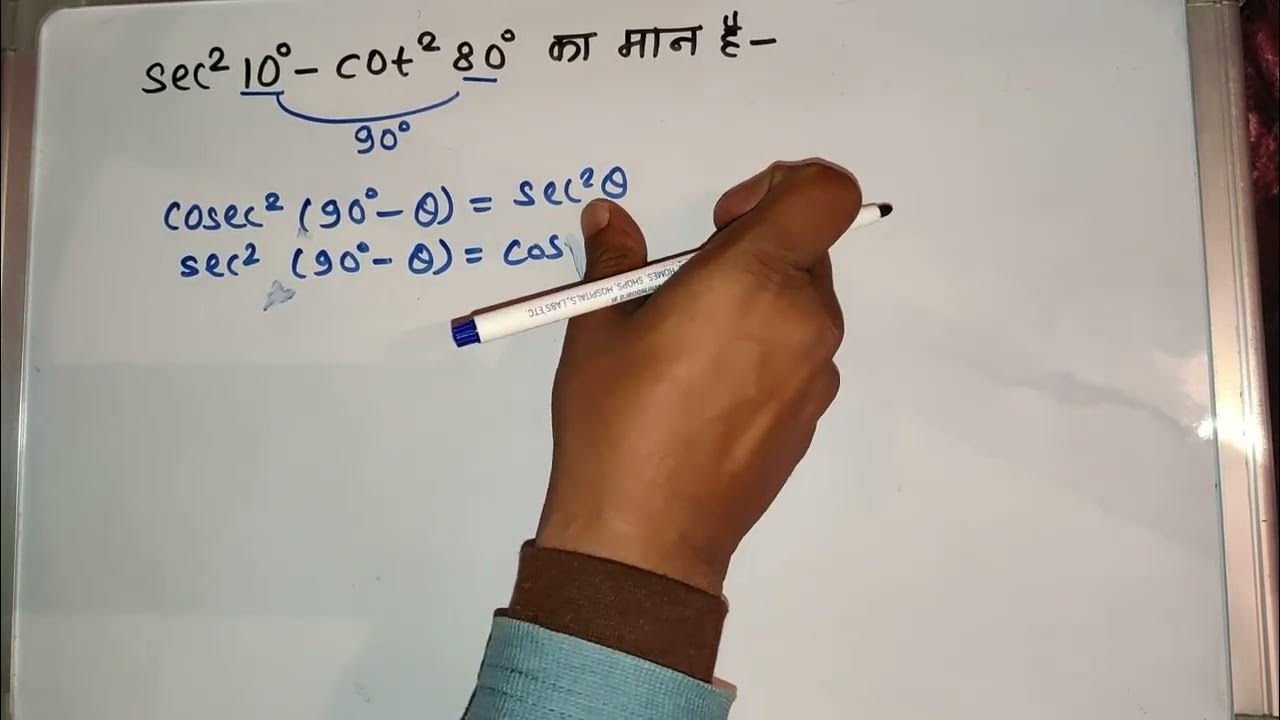 sec² 10° - cot² 80° का मान है-
90°
cosec² (90° - θ) = sec²θ
sec² (90° - θ) = cos
HOMES, SHOPS, HOSPITALS, LABS ETC.